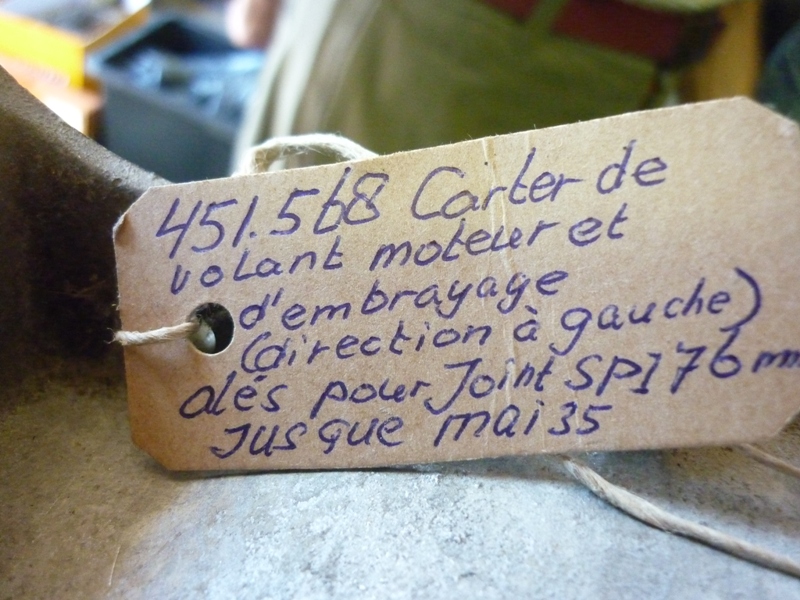 451.568 Carter de
volant moteur et
d'embrayage
(direction à gauche)
alés pour Joint SPI 76 mm
jusque mai 35